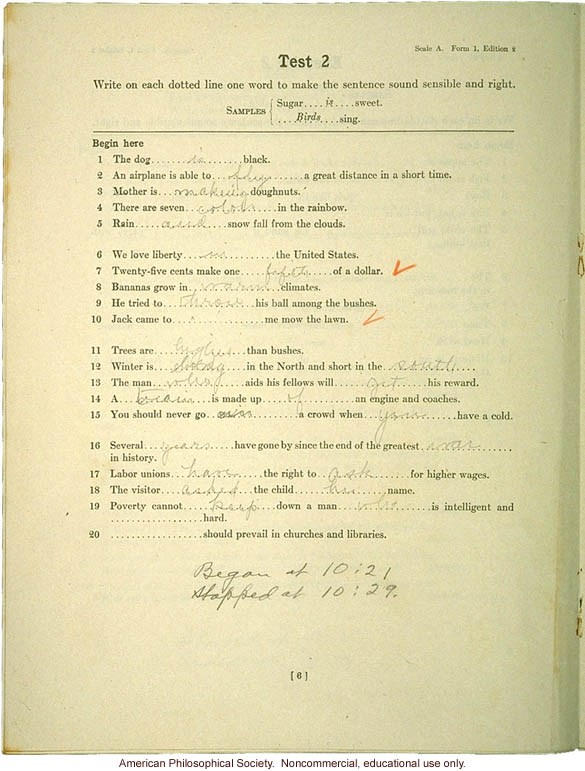 Scale A. Form 1, Edition 2
Test 2
Write on each dotted line one word to make the sentence sound sensible and right.
SAMPLES { Sugar....is....sweet.
....Birds....sing.
Begin here
1 The dog....is........black.
2 An airplane is able to...fly.......a great distance in a short time.
3 Mother is...making doughnuts.
4 There are seven...colors....in the rainbow.
5 Rain.....and.....snow fall from the clouds.
6 We love liberty....in..........the United States.
7 Twenty-five cents make one.............of a dollar.
8 Bananas grow in...warm....climates.
9 He tried to.....throw...his ball among the bushes.
10 Jack came to..............me mow the lawn.
11 Trees are....higher...than bushes.
12 Winter is.............in the North and short in the...south....
13 The man....who.....aids his fellows will......get......his reward.
14 A....train......is made up.....of........an engine and coaches.
15 You should never go............a crowd when....you.......have a cold.
16 Several....years....have gone by since the end of the greatest...war......
in history.
17 Labor unions...have....the right to...ask.......for higher wages.
18 The visitor....asked....the child....his.......name.
19 Poverty cannot.....keep....down a man....who.......is intelligent and
...................hard.
20 ...................should prevail in churches and libraries.
Began at 10:21
Stopped at 10:29.
[ 6 ]
American Philosophical Society. Noncommercial, educational use only.